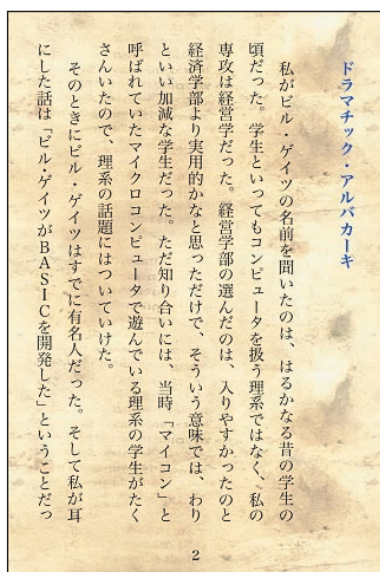 ドラマチック・アルバカーキ
私がビル・ゲイツの名前を聞いたのは、はるかなる昔の学生の
頃だった。学生といってもコンピュータを扱う理系ではなく、私の
専攻は経営学だった。経営学部の選んだのは、入りやすかったのと
経済学部より実用的かなと思っただけで、そういう意味では、わり
といい加減な学生だった。ただ知り合いには、当時「マイコン」と
呼ばれていたマイクロコンピュータで遊んでいる理系の学生がたく
さんいたので、理系の話題にはついていけた。
そのときにビル・ゲイツはすでに有名人だった。そして私が耳
にした話は「ビル・ゲイツがBASICを開発した」ということだっ
2